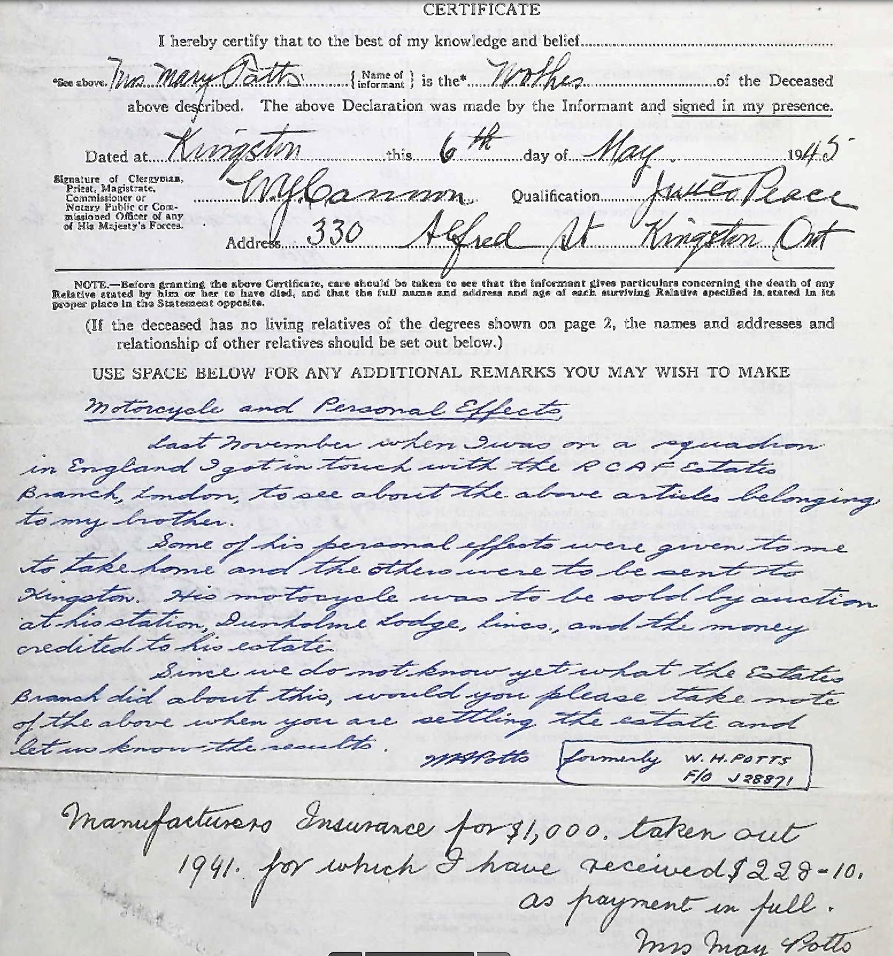 CERTIFICATE
I hereby certify that to the best of my knowledge and belief
*See above. Mrs Mary Potts { Name of informant } is the* Mother of the Deceased
above described. The above Declaration was made by the Informant and signed in my presence.
Dated at Kingston this 6th day of May 1945
Signature of Clergyman,
Priest, Magistrate,
Commissioner or
Notary Public or Com-
missioned Officer of any
of His Majesty's Forces.
W.J. Cannon Qualification Justice Peace
Address 330 Alfred St Kingston Ont
NOTE.—Before granting the above Certificate, care should be taken to see that the informant gives particulars concerning the death of any
Relative stated by him or her to have died, and that the full name and address and age of each surviving Relative specified is stated in its
proper place in the Statement opposite.
(If the deceased has no living relatives of the degrees shown on page 2, the names and addresses and
relationship of other relatives should be set out below.)
USE SPACE BELOW FOR ANY ADDITIONAL REMARKS YOU MAY WISH TO MAKE
Motorcycle and Personal Effects.
Last November when I was on a squadron
in England I got in touch with the RCAF Estates
Branch, London, to see about the above articles belonging
to my brother.
Some of his personal effects were given to me
to take home and the others were to be sent to
Kingston. His motorcycle was to be sold by auction
at his station, Dunholme Lodge, Lincs., and the money
credited to his estate.
Since we do not know yet what the Estates
Branch did about this, would you please take note
of the above when you are settling the estate and
let us know the results.
WHPotts formerly W.H.POTTS
F/O J28871
Manufacturers Insurance for $1,000. taken out
1941. for which I have received $228-10.
as payment in full.
Mrs May Potts